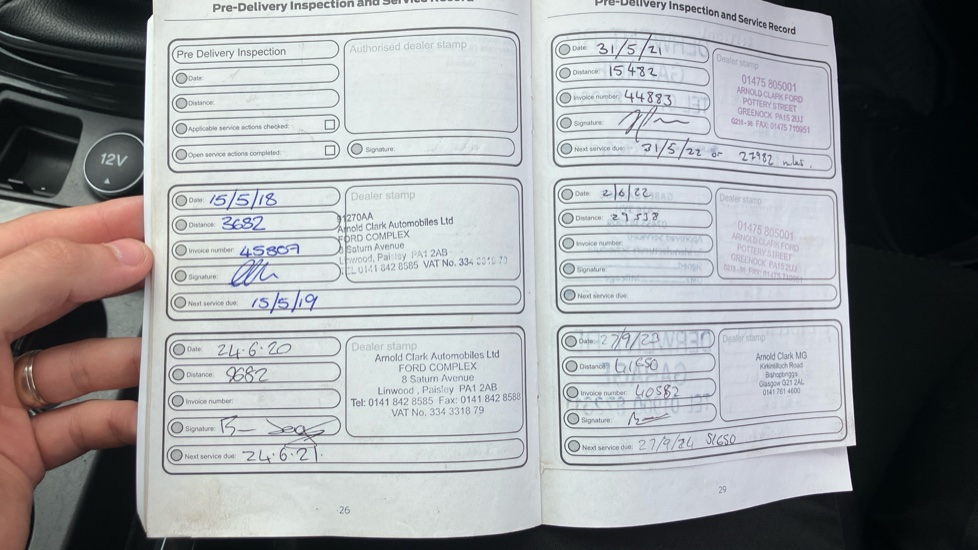 Pre-Delivery Inspection and Service Record
Pre Delivery Inspection
Date:
Distance:
Applicable service actions checked:
Open service actions completed:
Authorised dealer stamp
Signature:
Date: 15/5/18
Distance: 3682
Invoice number: 45807
Signature:
Next service due: 15/5/19
Dealer stamp
Arnold Clark Automobiles Ltd
FORD COMPLEX
8 Saturn Avenue
Linwood, Paisley PA1 2AB
TEL 0141 842 8585 VAT No. 334 3318 79
Date: 24.6.20
Distance: 9682
Invoice number:
Signature:
Next service due: 24.6.21.
Dealer stamp
Arnold Clark Automobiles Ltd
FORD COMPLEX
8 Saturn Avenue
Linwood , Paisley PA1 2AB
Tel: 0141 842 8585 Fax: 0141 842 8588
VAT No. 334 3318 79
26
Pre-Delivery Inspection and Service Record
Date: 31/5/21
Distance: 15482
Invoice number: 44883
Signature:
Next service due: 31/5/22 or 27982 mls.
Dealer stamp
01475 805001
ARNOLD CLARK FORD
POTTERY STREET
GREENOCK PA15 2UJ
FAX: 01475 710951
Date: 2/6/22
Distance: 27538
Invoice number:
Signature:
Next service due:
Dealer stamp
01475 805001
ARNOLD CLARK FORD
POTTERY STREET
GREENOCK PA15 2UJ
Date: 27/9/23
Distance: 41550
Invoice number: 40582
Signature:
Next service due: 27/9/24 51650
Dealer stamp
Arnold Clark MG
Kirkintilloch Road
Bishopbriggs
Glasgow G21 2AL
0141 761 4600
29
12V